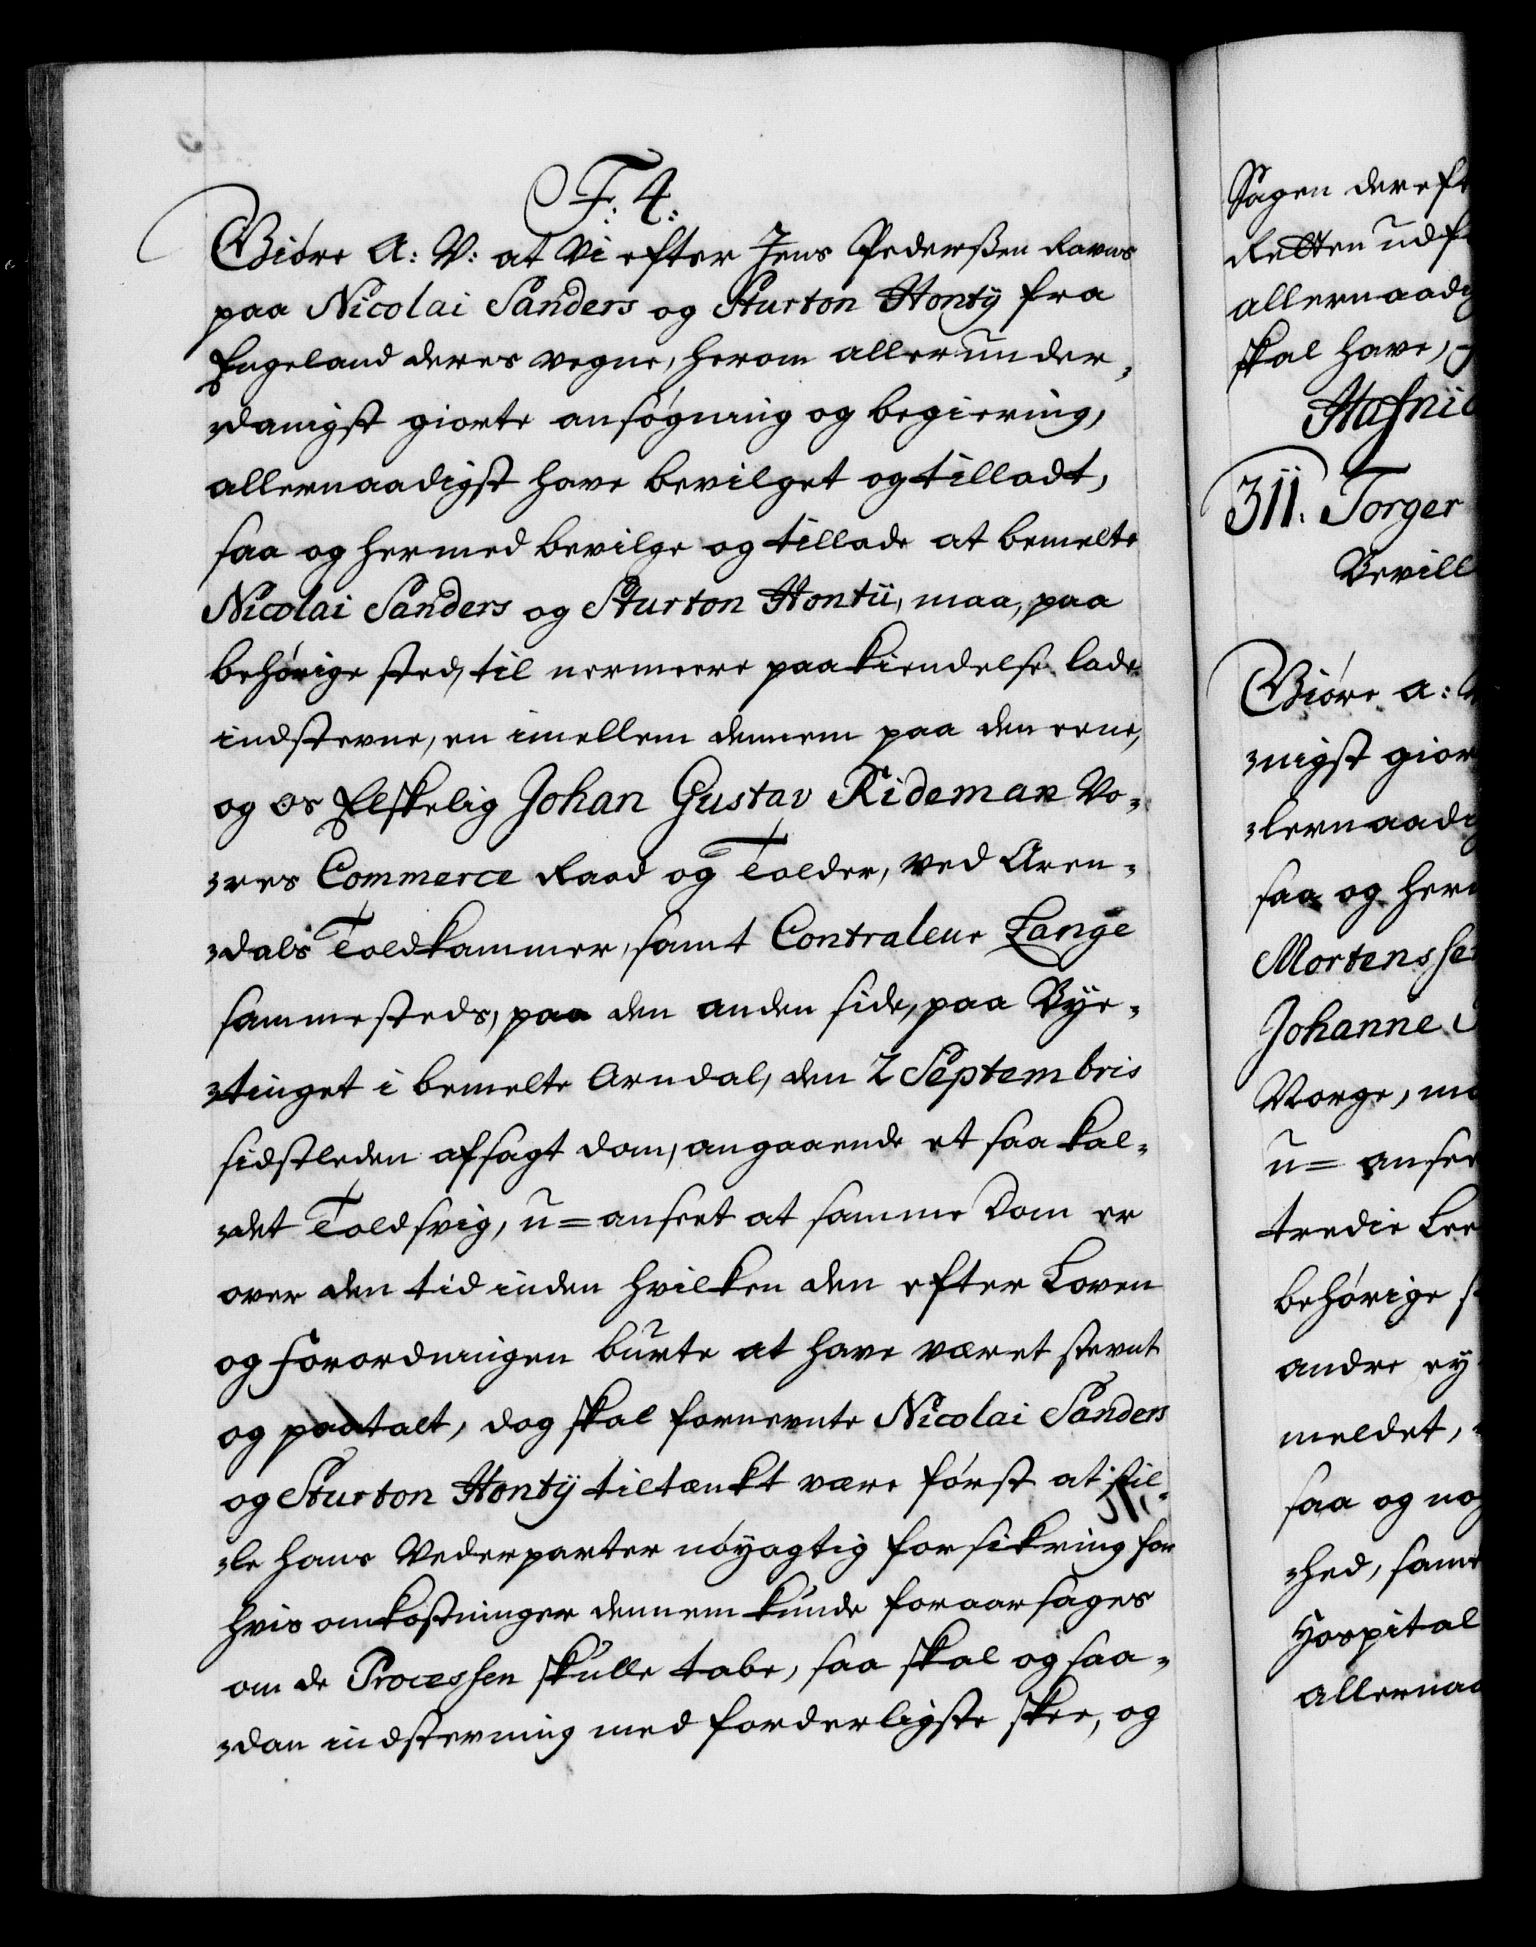 F: 4:
Giøre A: V: at Vi efter Jens Pederßen Ravns
paa Nicolai Sanders og Sturton Hontÿ fra
Engeland deres vegne, herom allerunder-
danigst giorte ansøgning og begiering,
allernaadigst have bevilget og tilladt,
saa og hermed bevilge og tillade at bemelte
Nicolai Sanders og Sturton Hontii, maa, paa
behörige sted, til nermere paakiendelse lade
indstevne, en imellem dennem paa den eene,
og os Elskelig Johan Gustav Rideman Vo-
res Commerce Raad og Tolder, ved Aren-
dals Toldkammer, samt Contraleur Lange
sammesteds, paa den anden side, paa Bÿe-
tinget i bemelte Arndal, den 2 Septembris
sidstleden afsagt dom, angaaende et saa kal-
det Toldsvig, u=anseet at samme Dom er
over den tid inden hvilken den efter Loven
og Forordningen burte at have været stevnt
og paatalt, dog skal fornevnte Nicolai Sanders
og Sturton Hontÿ tiltænkt være først at stil-
le hans Vederparter nöÿagtig forsikring for
hvis omkostninger dennem kunde foraarsages
om de Processen skulle tabe, saa skal og saa-
dan indstevning med forderligste skee, og
Sagen dereft
Retten udf
allernaadig
skal have,
Hafnia
311. Torger
Bevill
Giøre a: V
nigst gior
lernaadig
saa og herm
Mortenssen
Johanne
Norge, ma
u= anseet
tredie Lee
behörige s
andre eÿ
meldet,
saa og nog
hed, samt
Hospital
allernaa